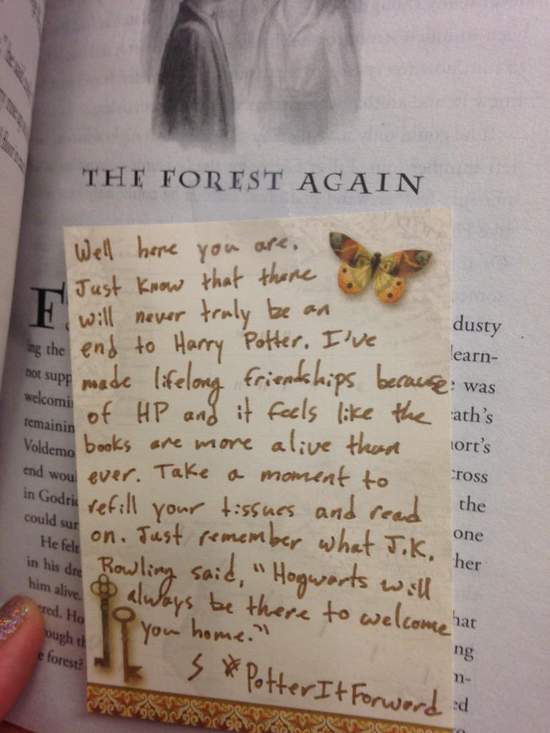 THE FOREST AGAIN
Well here you are.
Just know that there
will never truly be an
end to Harry Potter. I've
made lifelong friendships because
of HP and it feels like the
books are more alive than
ever. Take a moment to
refill your tissues and read
on. Just remember what J.K.
Rowling said, "Hogwarts will
always be there to welcome
you home."
S #PotterItForward
F
ng the
not supp
welcomi
remainin
Voldemo
end wou
in Godri
could sur
He felt
in his dre
him alive.
red. Ho
ough th
e forest?
dusty
learn-
was
eath's
ort's
cross
the
one
her
hat
ng
m-
ed